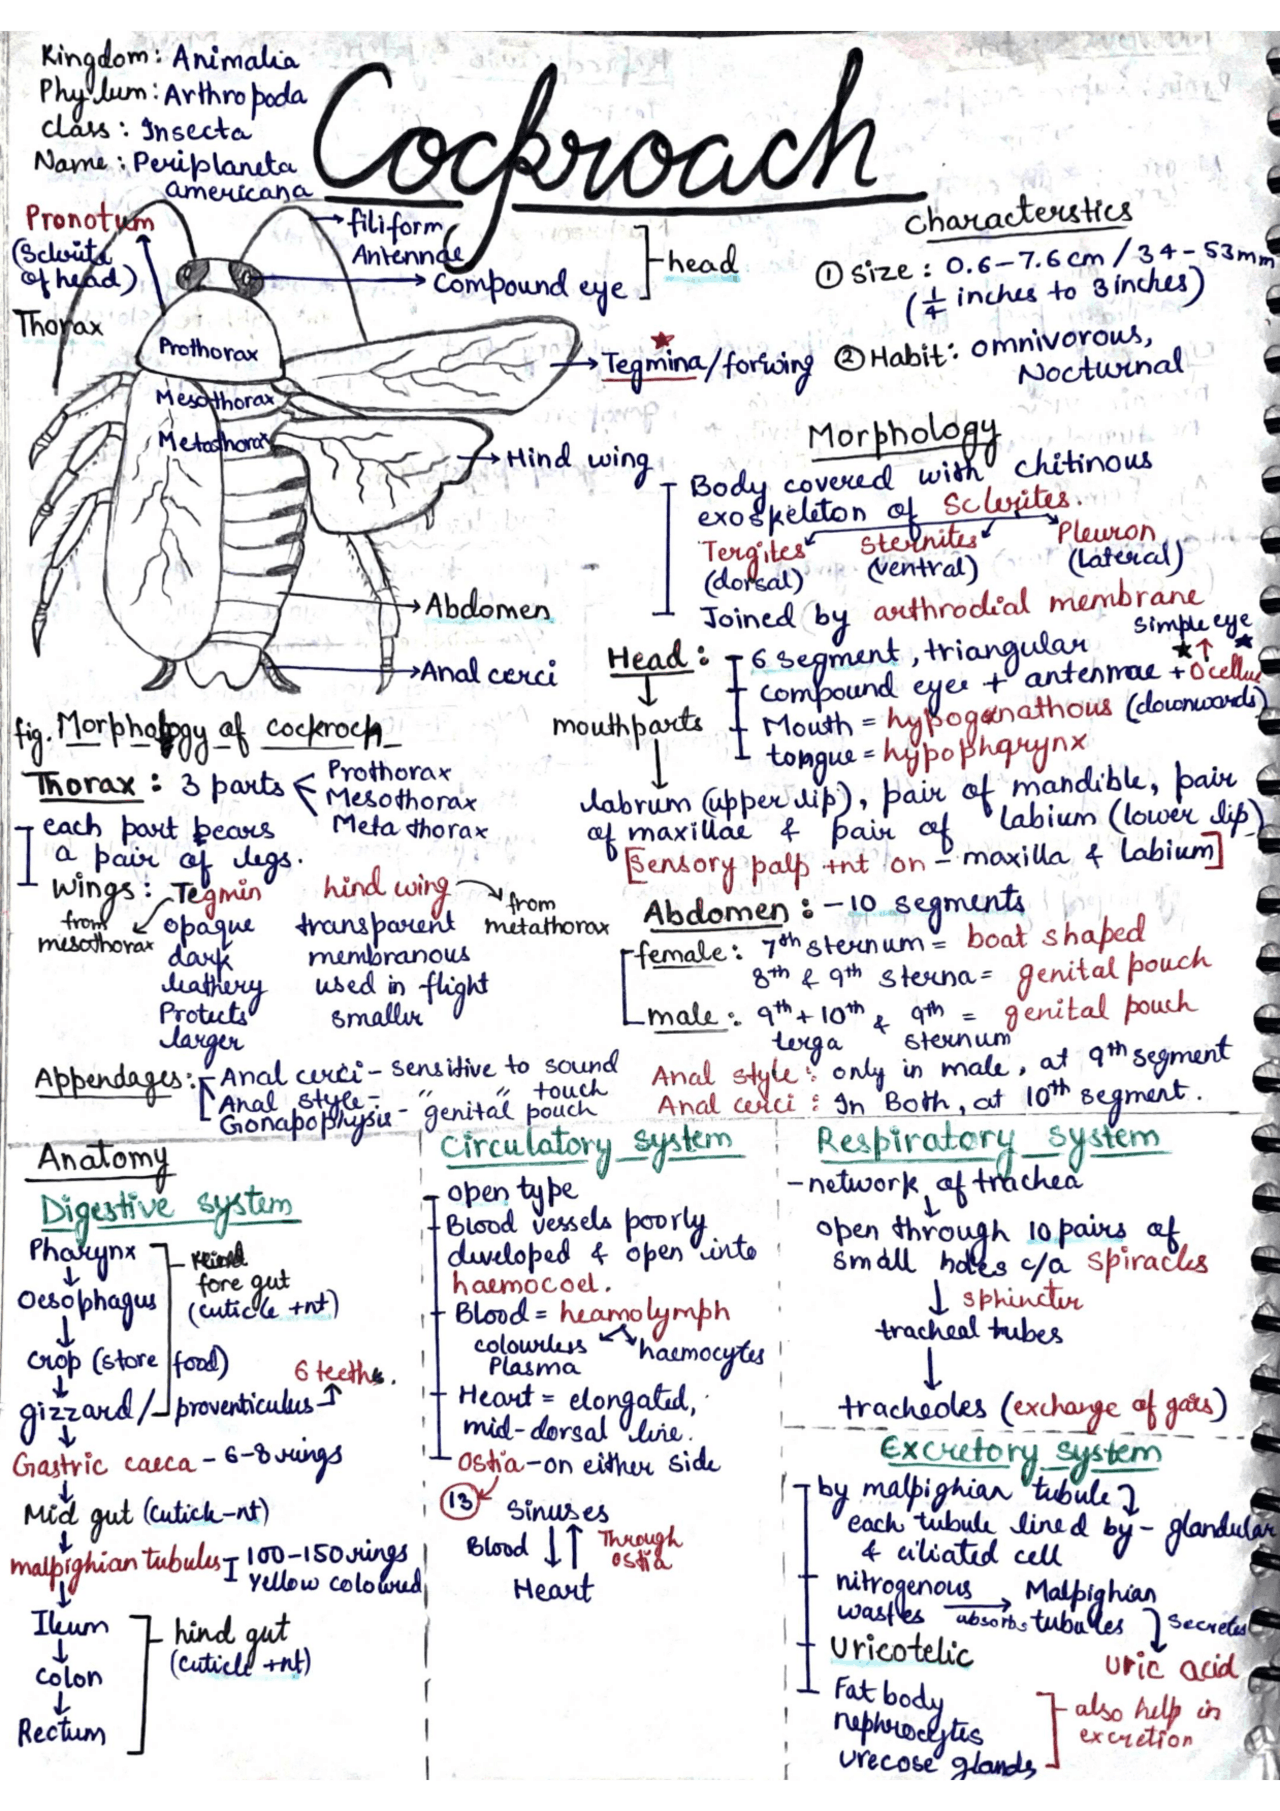 Kingdom: Animalia
Phylum: Arthropoda
class: Insecta
Name: Periplaneta
americana
Cockroach
Pronotum
(Sclerite
of head)
filiform
Antennae
Compound eye
head
Thorax
Prothorax
Mesothorax
Metathorax
Tegmina/forwing
Hind wing
Abdomen
Anal cerci
fig. Morphology of cockroch
Characterstics
① Size: 0.6-7.6 cm / 34-53mm
(1/4 inches to 3 inches)
② Habit: omnivorous,
Nocturnal
Morphology
Body covered with chitinous
exoskeleton of Sclerites.
Tergites Sternites Pleuron
(dorsal) (ventral) (lateral)
Joined by arthrodial membrane
simple eye
Head: 6 segment, triangular
compound eyes + antennae + Ocellus
Mouth = hypogonathous (downwards)
tongue = hypopharynx
mouthparts
labrum (upper lip), pair of mandible, pair
of maxillae & pair of labium (lower lip)
[Sensory palp +nt on - maxilla & Labium]
Thorax: 3 parts Prothorax
Mesothorax
Meta thorax
each part bears
a pair of legs.
Wings: Tegmin hind wing
from mesothorax from metathorax
opaque transparent
dark membranous
leathery used in flight
Protects smaller
larger
Abdomen: -10 segments
female: 7th sternum = boat shaped
8th & 9th sterna = genital pouch
male: 9th + 10th & 9th = genital pouch
terga sternum
Anal style: only in male, at 9th segment
Anal cerci: In Both, at 10th segment.
Appendages: Anal cerci - sensitive to sound
Anal style - " " touch
Gonapophysis - genital pouch
Anatomy
Digestive system
Pharynx
Oesophagus
fore gut
(cuticle +nt)
Crop (store food)
6 teeths.
gizzard/proventiculus
Gastric caeca - 6-8 rings
Mid gut (cutick-nt)
malpighian tubules 100-150 rings
yellow coloured
Ileum
colon
Rectum
hind gut
(cuticle +nt)
Circulatory system
open type
Blood vessels poorly
developed & open into
haemocoel.
Blood = heamolymph
colourless haemocytes
Plasma
Heart = elongated,
mid-dorsal line.
Ostia - on either side
13
Sinuses
Blood Through
ostia
Heart
Respiratory system
- network of trachea
open through 10 pairs of
small holes c/a spiracles
sphincter
tracheal tubes
tracheoles (exchange of gases)
Excretory system
by malpighian tubule
each tubule lined by - glandular
& ciliated cell
nitrogenous Malpighian
wastes absorbs tubules secretes
Uricotelic
Uric acid
Fat body
nephrocytes
urecose glands
also help in
excretion